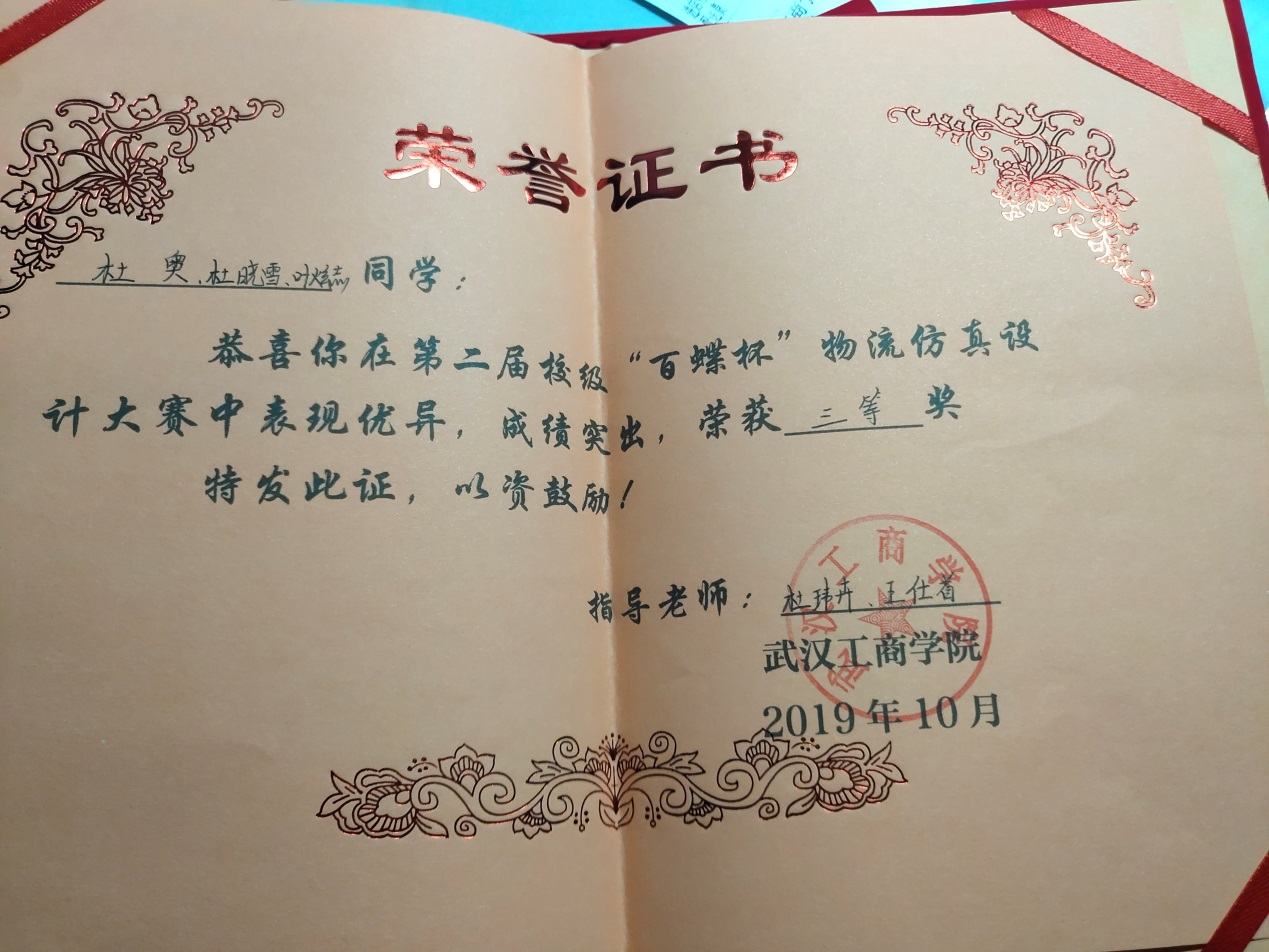 荣誉证书
杜奥、杜晓雪、叶 志同学：
恭喜你在第二届校级“百蝶杯”物流仿真设
计大赛中表现优异，成绩突出，荣获三等奖
特发此证，以资鼓励！
指导老师：杜玮卉、王仕
武汉工商学院
武汉工商学院
2019年10月